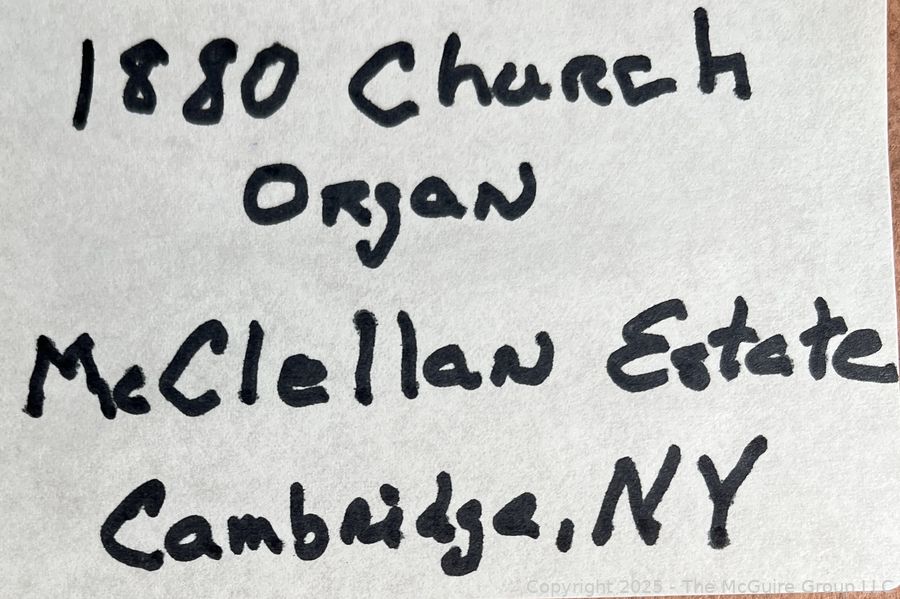 1880 Church
Organ
McClellan Estate
Cambridge, NY
Copyright 2025 - The McGuire Group LLC